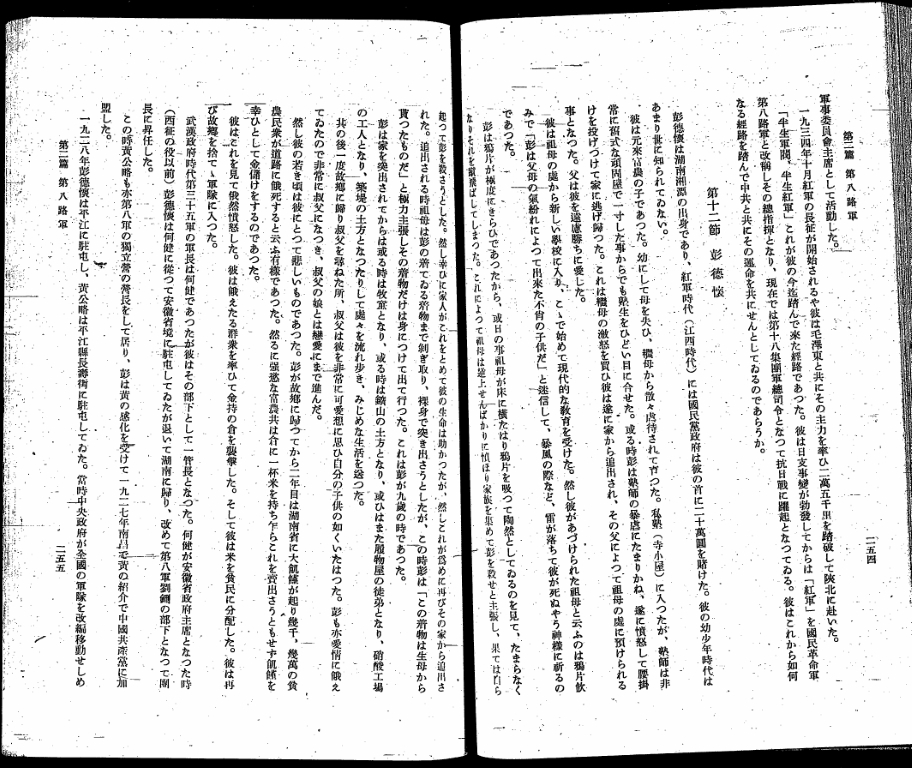 第二篇 第八路軍
二五四
軍事委員會主席として活動した。
一九三四年十月紅軍の長征が開始されるや彼は毛澤東と共にその主力を率ひ二萬五千里を踏破して陝北に赴いた。
「半生軍閥、半生紅軍」これが彼の今迄踏んで來た經路であつた。彼は日支事變が勃發してからは「紅軍」を國民革命軍
第八路軍と改稱しその總指揮となり、現在では第十八集團軍總司令となつて抗日戰に躍起となつてゐる。彼はこれから如何
なる經路を踏んで中共と共にその運命を共にせんとしてゐるのであらうか。
第十二節 彭德懷
彭德懷は湖南湘潭の出身であり、紅軍時代(江西時代)には國民黨政府は彼の首に二十萬圓を賭けた。彼の幼少年時代は
あまり世に知られてゐない。
彼は元來富農の子であつた。幼にして母を失ひ、繼母から散々虐待されて育つた。私塾(寺小屋)に入つたが、塾師は非
常に舊式な頑固屋で一寸した事からでも塾生をひどい目に合せた。或る時彭は塾師の暴虐にたまりかね、遂に憤怒して腰掛
けを投げつけて家に逃げ歸つた。これは繼母の激怒を買ひ彼は遂に家から追出され、その父によつて祖母の處に預けられる
事となつた。父は彼を遠慮勝ちに愛した。
彼は祖母の處から新しい學校に入り、こゝで始めて現代的な敎育を受けた。然し彼があづけられた祖母と云ふのは鴉片飲
みで「彭は父母の氣紛れによつて出來た不肖の子供だ」と迷信して、暴風の際など、雷が落ちて彼が死ぬやう神樣に祈るの
であつた。
彭は鴉片が極度にきらひであつたから、或日の事祖母が床に橫たはり鴉片を吸つて陶然としてゐるのを見て、たまらなく
なりそれを蹴飛ばしてしまつた。これによつて祖母は逆上せんばかりに憤ほり家族を集めて彭を殺せと主張し、果ては自ら
起つて彭を殺さうとした。然し幸ひに家人がこれをとめて彼の生命は助かつたが、然しこれが爲めに再びその家から追出さ
れた。追出される時祖母は彭の着てゐる着物まで剝ぎ取り、裸身で突き出さうとしたが、この時彭は「この着物は生母から
貰つたものだ」と極力主張しその着物だけは身につけて出て行つた。これは彭が九歲の時であつた。
彭は家を突出されてからは或る時は牧童となり、或る時は鑛山の土方となり、或ひはまた履物屋の徒弟となり、硝酸工場
の工人となり、築堤の土方となつたりして處々を流れ步き、みじめな生活を送つた。
其の後一度故鄕に歸り叔父を尋ねた所、叔父は彼を非常に可愛想に思ひ自分の子供の如くいたはつた。彭も亦愛情に餓え
てゐたので非常に叔父になつき、叔父の娘とは戀愛にまで進んだ。
然し彼の若き頃は彼にとつて悲しいものであつた。彭が故鄕に歸つてから二年目は湖南省に大飢饉が起り幾千、幾萬の貧
農民衆が道路に餓死すると云ふ有樣であつた。然るに强慾な富農共は倉に一杯米を持ち乍らこれを賣出さうともせず飢饉を
幸ひとして金儲けをするのであつた。
彼はこれを見て俄然憤怒した。彼は餓えたる群衆を率ひて金持の倉を襲擊した。そして彼は米を貧民に分配した。彼は再
び故鄕を捨てゝ軍隊に入つた。
武漢政府時代第三十五軍の軍長は何健であつたが彼はその部下として一營長となつた。何健が安徽省政府主席となつた時
(西征の役以前)彭德懷は何健に從つて安徽省境に駐屯してゐたが退いて湖南に歸り、改めて第八軍劉鉶の部下となつて團
長に昇任した。
この時黃公略も亦第八軍の獨立營の營長をして居り、彭は黃の感化を受けて一九二七年南昌で黃の紹介で中國共產黨に加
盟した。
一九二八年彭德懷は平江に駐屯し、黃公略は平江縣長壽街に駐屯してゐた。當時中央政府が全國の軍隊を改編移動せしめ
第二篇 第八路軍
二五五